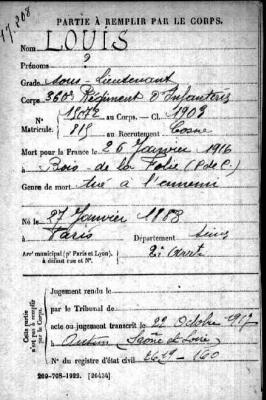 17.208
PARTIE À REMPLIR PAR LE CORPS.
Nom LOUIS
Prénoms ?
Grade Sous-Lieutenant
Corps 360e Régiment d'Infanterie
N° Matricule. au Corps. — Cl. 1903
819 au Recrutement Cosne
Mort pour la France le 26 Janvier 1916
à Bois de la Folie (P. de C.)
Genre de mort tué à l'ennemi
Né le 27 Janvier 1883
à Paris Département Seine
Arrt municipal (pr Paris et Lyon),
à défaut rue et N°.
Cette partie
n'est pas à remplir
par le Corps.
Jugement rendu le
par le Tribunal de
acte ou jugement transcrit le 22 Octobre 1917
à Autun (Saône et Loire)
N° du registre d'état civil
269-708-1922. [26434]